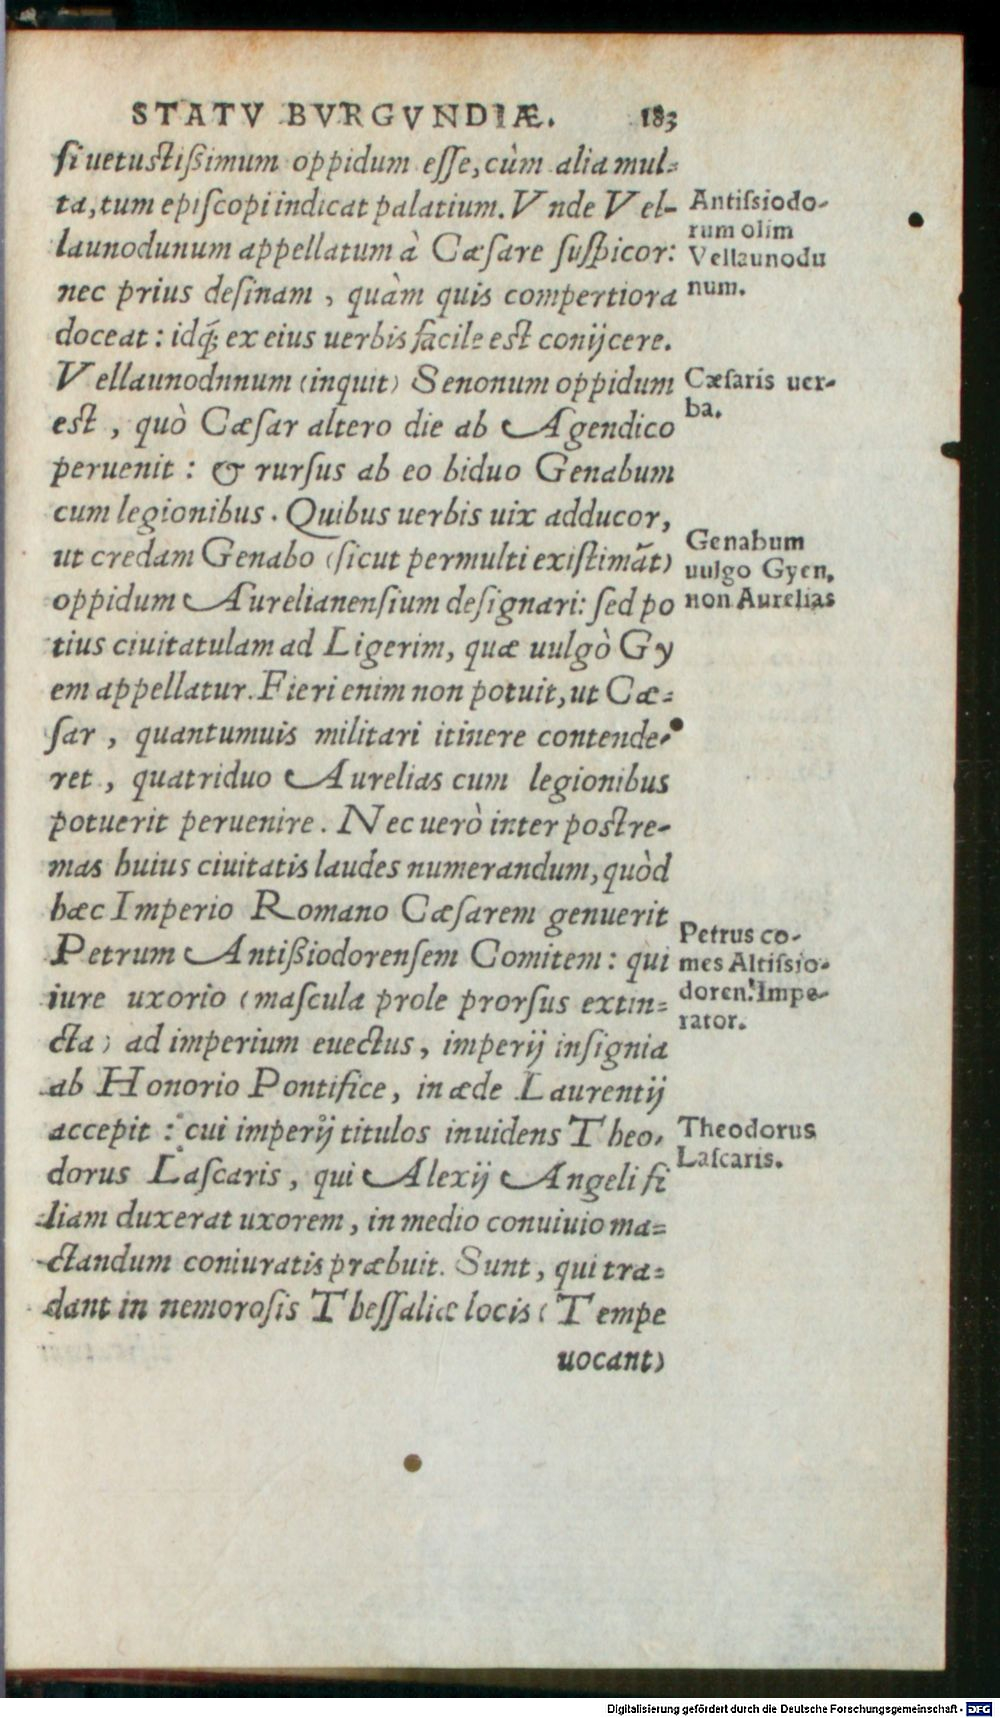 STATV BVRGVNDIÆ. 183
si uetustißimum oppidum esse, cùm alia mul=
ta, tum episcopi indicat palatium. Vnde Vel-
launodunum appellatum à Cæsare suspicor:
nec prius desinam, quàm quis compertiora
doceat: idq́; ex eius uerbis facile est conijcere.
Vellaunodnnum (inquit) Senonum oppidum
est, quò Cæsar altero die ab Agendico
peruenit: & rursus ab eo biduo Genabum
cum legionibus. Quibus uerbis uix adducor,
ut credam Genabo (sicut permulti existimãt)
oppidum Aurelianensium designari: sed po
tius ciuitatulam ad Ligerim, quæ uulgò Gy
em appellatur. Fieri enim non potuit, ut Cæ=
sar, quantumuis militari itinere contende-
ret, quatriduo Aurelias cum legionibus
potuerit peruenire. Nec uerò inter postre-
mas huius ciuitatis laudes numerandum, quòd
hæc Imperio Romano Cæsarem genuerit
Petrum Antißiodorensem Comitem: qui
iure uxorio (mascula prole prorsus extin=
cta) ad imperium euectus, imperij insignia
ab Honorio Pontifice, in æde Laurentij
accepit: cui imperij titulos inuidens Theo-
dorus Lascaris, qui Alexij Angeli fi
liam duxerat uxorem, in medio conuiuio ma=
ctandum coniuratis præbuit. Sunt, qui tra=
dant in nemorosis Thessaliæ locis (Tempe
uocant)
Antissiodo-
rum olim
Vellaunodu
num.
Cæsaris uer-
ba.
Genabum
uulgo Gyen,
non Aurelias
Petrus co-
mes Altissio-
doren. Impe-
rator.
Theodorus
Lascaris.
Digitalisierung gefördert durch die Deutsche Forschungsgemeinschaft - DFG